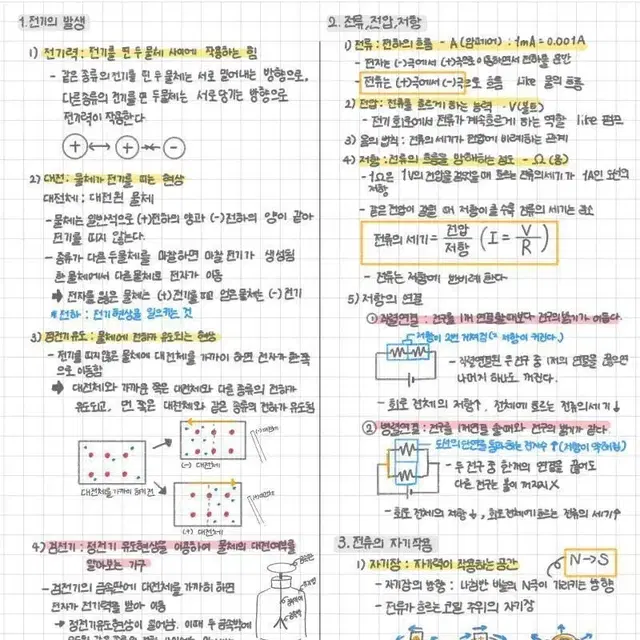 1. 전기의 발생
1) 전기력 : 전기를 띤 두 물체 사이에 작용하는 힘
- 같은 종류의 전기를 띤 두 물체는 서로 밀어내는 방향으로,
다른종류의 전기를 띤 두물체는 서로 당기는 방향으로
전기력이 작용한다
+ + -
2) 대전 : 물체가 전기를 띠는 현상
대전체 : 대전된 물체
- 물체는 일반적으로 (+)전하의 양과 (-)전하의 양이 같아
전기를 띠지 않는다.
- 종류가 다른 두물체를 마찰하면 마찰 전기가 생성됨
한 물체에서 다른물체로 전자가 이동
➡ 전자를 잃은 물체는 (+)전기를 띠고 얻은물체는 (-)전기
* 전하 : 전기현상을 일으키는 것
3) 정전기유도 : 물체에 전하가 유도되는 현상
- 전기를 띠지않은 물체에 대전체를 가까이 하면 전자가 한쪽
으로 이동함
➡ 대전체와 가까운 쪽은 대전체와 다른 종류의 전하가
유도되고, 먼 쪽은 대전체와 같은 종류의 전하가 유도됨
(-) 대전체
대전체를 가까이 하기 전
(+) 대전체
4) 검전기 : 정전기 유도현상을 이용하여 물체의 대전여부를
알아보는 기구
- 검전기의 금속판에 대전체를 가까이 하면
전자가 전기력을 받아 이동
→ 정전기유도현상이 일어남. 이때 금속박에
2. 전류, 전압, 저항
1) 전류 : 전하의 흐름 - A (암페어) : 1mA = 0.001A
- 전자는 (-)극에서 (+)극으로 이동하면서 전하를 운반
전류는 (+)극에서 (-)극으로 흐름 like 물의 흐름
2) 전압 : 전류를 흐르게 하는 능력 - V(볼트)
- 전기 회로에서 전류가 계속흐르게 하는 역할 like 펌프
3) 옴의 법칙 : 전류의 세기가 전압에 비례하는 관계
4) 저항 : 전류의 흐름을 방해하는 정도 - Ω (옴)
- 1Ω은 1V의 전압을 걸었을 때 흐르는 전류의세기가 1A인 도선의
저항
- 같은 전압이 걸릴 때 저항이 클 수록 전류의 세기는 감소
전류의 세기 = 전압 / 저항 ( I = V / R )
- 전류는 저항에 반비례 한다.
5) 저항의 연결
① 직렬연결 : 전구를 1개 연결할 때보다 전구의 밝기가 어둡다.
- 직렬연결된 두 전구 중 1개의 연결을 끊으면
나머지 하나도 꺼진다.
- 회로 전체의 저항↑, 전체에 흐르는 전류의세기↓
② 병렬연결 : 전구를 1개연결 할 때와 전구의 밝기가 같다.
- 두 전구 중 한개의 연결을 끊어도
다른 전구는 불이 꺼지지 X
- 회로 전체의 저항↓, 회로전체에 흐르는 전류의 세기↑
3. 전류의 자기작용
N→S
1) 자기장 : 자기력이 작용하는 공간
- 자기장의 방향 : 나침반 바늘의 N극이 가리키는 방향
- 전류가 흐르는 코일 주위의 자기장